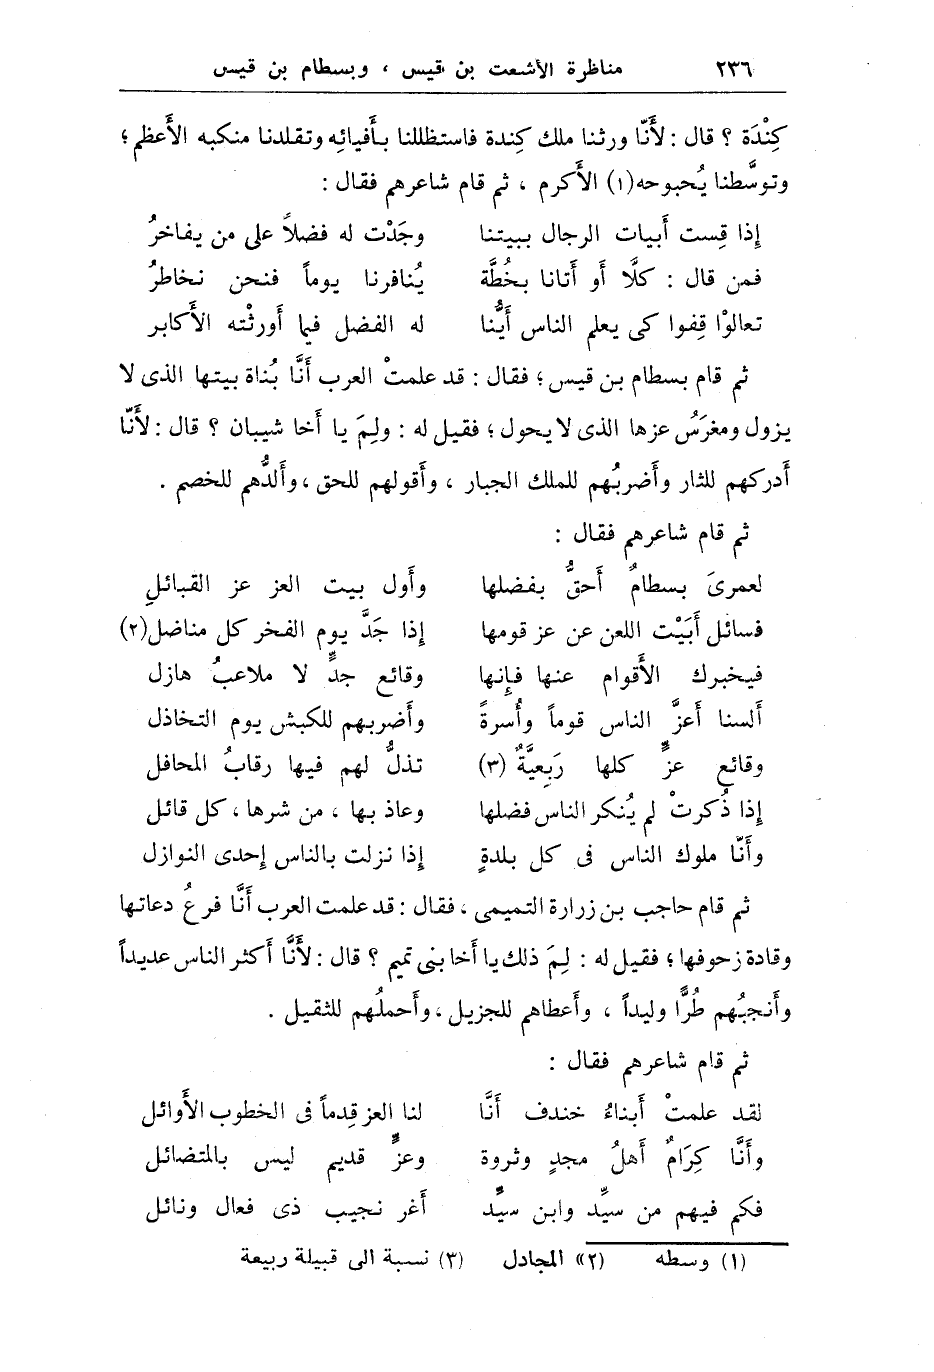 ٢٣٦ مناظرة الأشعت بن قيس ، وبسطام بن قيس
كِنْدَة ؟ قال : لأَنّا ورثنا ملك كِندة فاستظللنا بأَفيائِه وتقلدنا منكبه الأَعظم ؛
وتوسَّطنا يُحبوحه(١) الأَكرم ، ثم قام شاعرهم فقال :
إذا قِست أَبيات الرجال ببيتنا وجَدْت له فضلاً على من يفاخرُ
فمن قال : كلَّا أو أَتانا بخُطَّة يُنافرنا يوماً فنحن نخاطرُ
تعالوْا قِفوا كى يعلم الناس أَيُّنا له الفضل فيما أَورثْته الأَكابر
ثم قام بسطام بن قيس ؛ فقال : قد علمتْ العرب أَنَّا بُناة بيتها الذى لا
يزول ومغرَسُ عزها الذى لا يحول ؛ فقيل له : ولِمَ يا أَخا شيبان ؟ قال : لأَنّا
أَدركهم للثار وأَضربُهم للملك الجبار ، وأَقولهم للحق ، وأَلدُّهم للخصم .
ثم قام شاعرهم فقال :
لعمرىَ بسطامٌ أَحقُّ بفضلها وأَول بيت العز عز القبائلِ
فسائل أَبَيْت اللعن عن عز قومها إذا جَدَّ يوم الفخر كل مناضل(٢)
فيخبرك الأَقوام عنها فإِنها وقائع جدٍّ لا ملاعبُ هازل
أَلسنا أَعزَّ الناس قوماً وأُسرةً وأَضربهم للكبش يوم التخاذل
وقائع عزٍّ كلها رَبِعيَّةٌ (٣) تذلُّ لهم فيها رقابُ المحافل
إذا ذُكرتْ لم يُنكر الناس فضلها وعاذ بها ، من شرها ، كل قائل
وأَنّا ملوك الناس فى كل بلدةٍ إذا نزلت بالناس إحدى النوازل
ثم قام حاجب بن زرارة التميمى ، فقال : قد علمت العرب أَنَّا فرعُ دعاتها
وقادة زحوفها ؛ فقيل له : لِمَ ذلك يا أَخا بنى تميم ؟ قال : لأَنَّا أَكثر الناس عديداً
وأَنجبُهم طُرًّا وليداً ، وأَعطاهم للجزيل ، وأَحملُهم للثقيل .
ثم قام شاعرهم فقال :
لقد علمتْ أَبناءُ خندف أَنَّا لنا العز قِدماً فى الخطوب الأَوائل
وأَنَّا كِرَامٌ أَهلُ مجدٍ وثروة وعزٍّ قديم ليس بالمتضائل
فكم فيهم من سيِّد وابن سيِّد أَغر نجيب ذى فعال ونائل
(١) وسطه (٢» المجادل (٣) نسبة الى قبيلة ربيعة